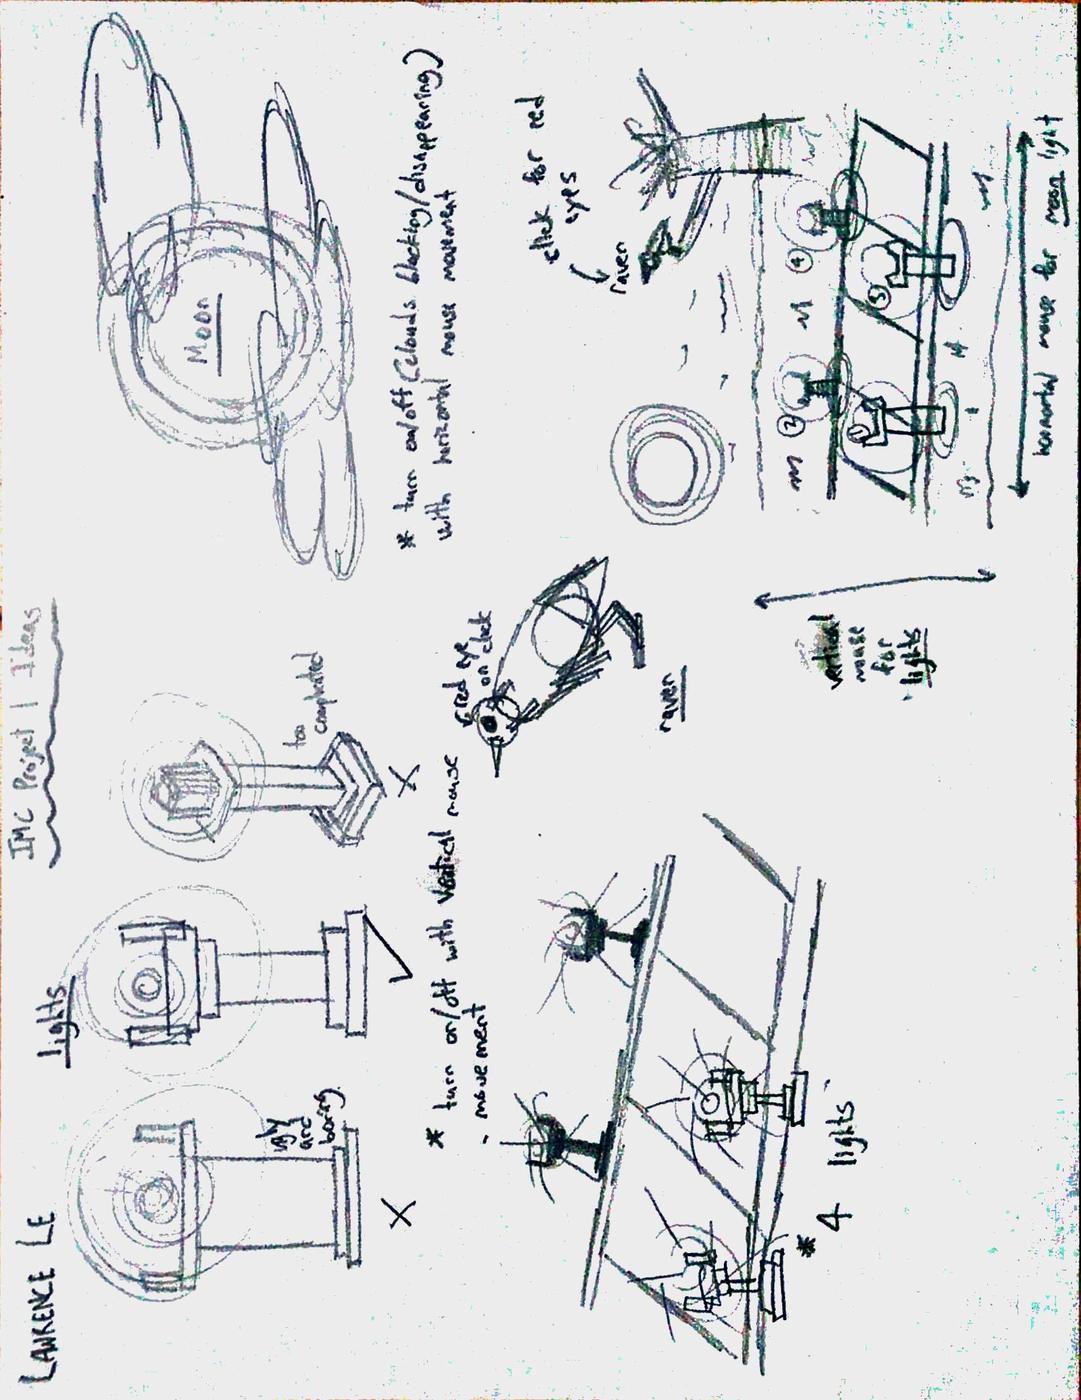 LAWRENCE LE
IMC Project 1 Ideas
lights
ugly
and
boring
X
too
complicated
X
* turn on/off with vertical mouse
- movement
Moon
* turn on/off (clouds blocking/disappearing)
with horizontal mouse movement
* 4 lights
red eye
on click
raven
click for red
eyes
raven
1
2
3
4
vertical
mouse
for
lights
horizontal mouse for moon light